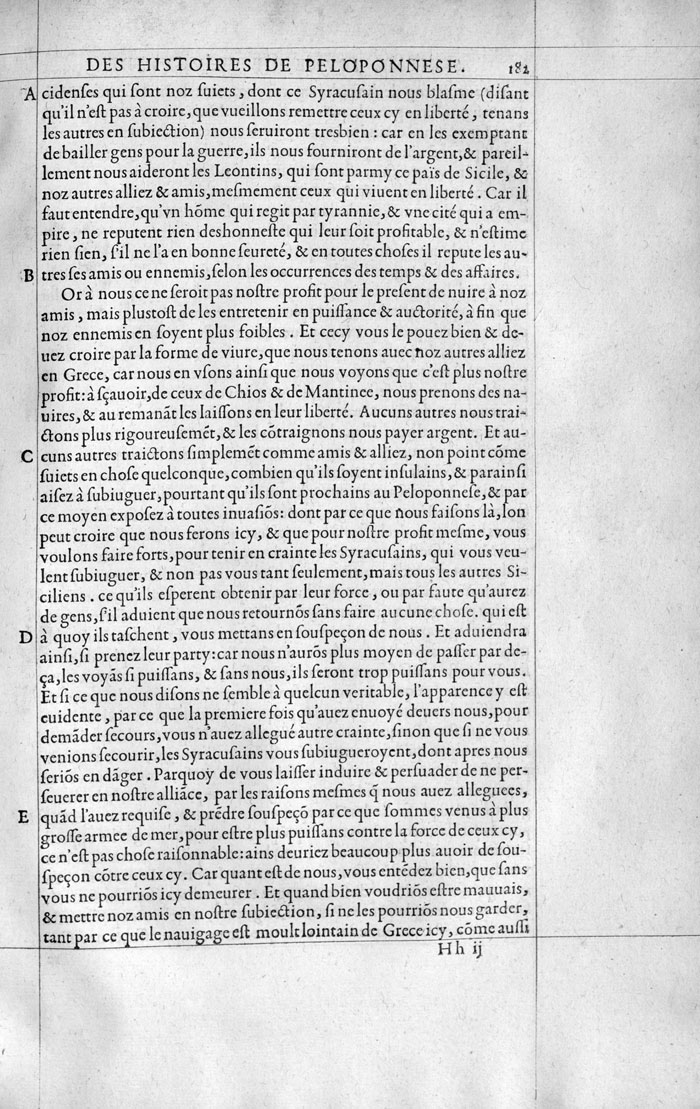 DES HISTOIRES DE PELOPONNESE. 182
A cidenses qui ſont noz ſuiets, dont ce Syracuſain nous blaſme (diſant
qu'il n'eſt pas à croire, que vueillons remettre ceux cy en liberté, tenans
les autres en ſubiection) nous ſeruiront tresbien : car en les exemptant
de bailler gens pour la guerre, ils nous fourniront de l'argent, & pareil-
lement nous aideront les Leontins, qui ſont parmy ce païs de Sicile, &
noz autres alliez & amis, meſmement ceux qui viuent en liberté. Car il
faut entendre, qu'vn hōme qui regit par tyrannie, & vne cité qui a em-
pire, ne reputent rien deshonneſte qui leur ſoit profitable, & n'eſtime
rien ſien, ſ'il ne l'a en bonne ſeureté, & en toutes choſes il repute les au-
B tres ſes amis ou ennemis, ſelon les occurrences des temps & des affaires.
Or à nous ce ne ſeroit pas noſtre profit pour le preſent de nuire à noz
amis, mais pluſtoſt de les entretenir en puiſſance & auctorité, à fin que
noz ennemis en ſoyent plus foibles. Et cecy vous le pouez bien & de-
uez croire par la forme de viure, que nous tenons auec noz autres alliez
en Grece, car nous en vſons ainſi que nous voyons que c'eſt plus noſtre
profit: à ſçauoir, de ceux de Chios & de Mantinee, nous prenons des na-
uires, & au remanāt les laiſſons en leur liberté. Aucuns autres nous trai-
ctons plus rigoureuſemēt, & les cōtraignons nous payer argent. Et au-
C cuns autres traictons ſimplemēt comme amis & alliez, non point cōme
ſuiets en choſe quelconque, combien qu'ils ſoyent inſulains, & parainſi
aiſez à ſubiuguer, pourtant qu'ils ſont prochains au Peloponneſe, & par
ce moyen expoſez à toutes inuaſiōs: dont par ce que nous faiſons là, lon
peut croire que nous ferons icy, & que pour noſtre profit meſme, vous
voulons faire forts, pour tenir en crainte les Syracuſains, qui vous veu-
lent ſubiuguer, & non pas vous tant ſeulement, mais tous les autres Si-
ciliens. ce qu'ils eſperent obtenir par leur force, ou par faute qu'aurez
de gens, ſ'il aduient que nous retournōs ſans faire aucune choſe. qui eſt
D à quoy ils taſchent, vous mettans en ſouſpeçon de nous. Et aduiendra
ainſi, ſi prenez leur party: car nous n'aurōs plus moyen de paſſer par de-
ça, les voyās ſi puiſſans, & ſans nous, ils ſeront trop puiſſans pour vous.
Et ſi ce que nous diſons ne ſemble à quelcun veritable, l'apparence y eſt
euidente, par ce que la premiere fois qu'auez enuoyé deuers nous, pour
demāder ſecours, vous n'auez allegué autre crainte, ſinon que ſi ne vous
venions ſecourir, les Syracuſains vous ſubiugueroyent, dont apres nous
ſeriōs en dāger. Parquoy de vous laiſſer induire & perſuader de ne per-
ſeuerer en noſtre alliāce, par les raiſons meſmes q̄ nous auez alleguees,
E quād l'auez requiſe, & prēdre ſouſpeçō par ce que ſommes venus à plus
groſſe armee de mer, pour eſtre plus puiſſans contre la force de ceux cy,
ce n'eſt pas choſe raiſonnable: ains deuriez beaucoup plus auoir de ſou-
ſpeçon cōtre ceux cy. Car quant eſt de nous, vous entēdez bien, que ſans
vous ne pourriōs icy demeurer. Et quand bien voudriōs eſtre mauuais,
& mettre noz amis en noſtre ſubiection, ſi ne les pourriōs nous garder,
tant par ce que le nauigage eſt moult lointain de Grece icy, cōme auſſi
Hh ij